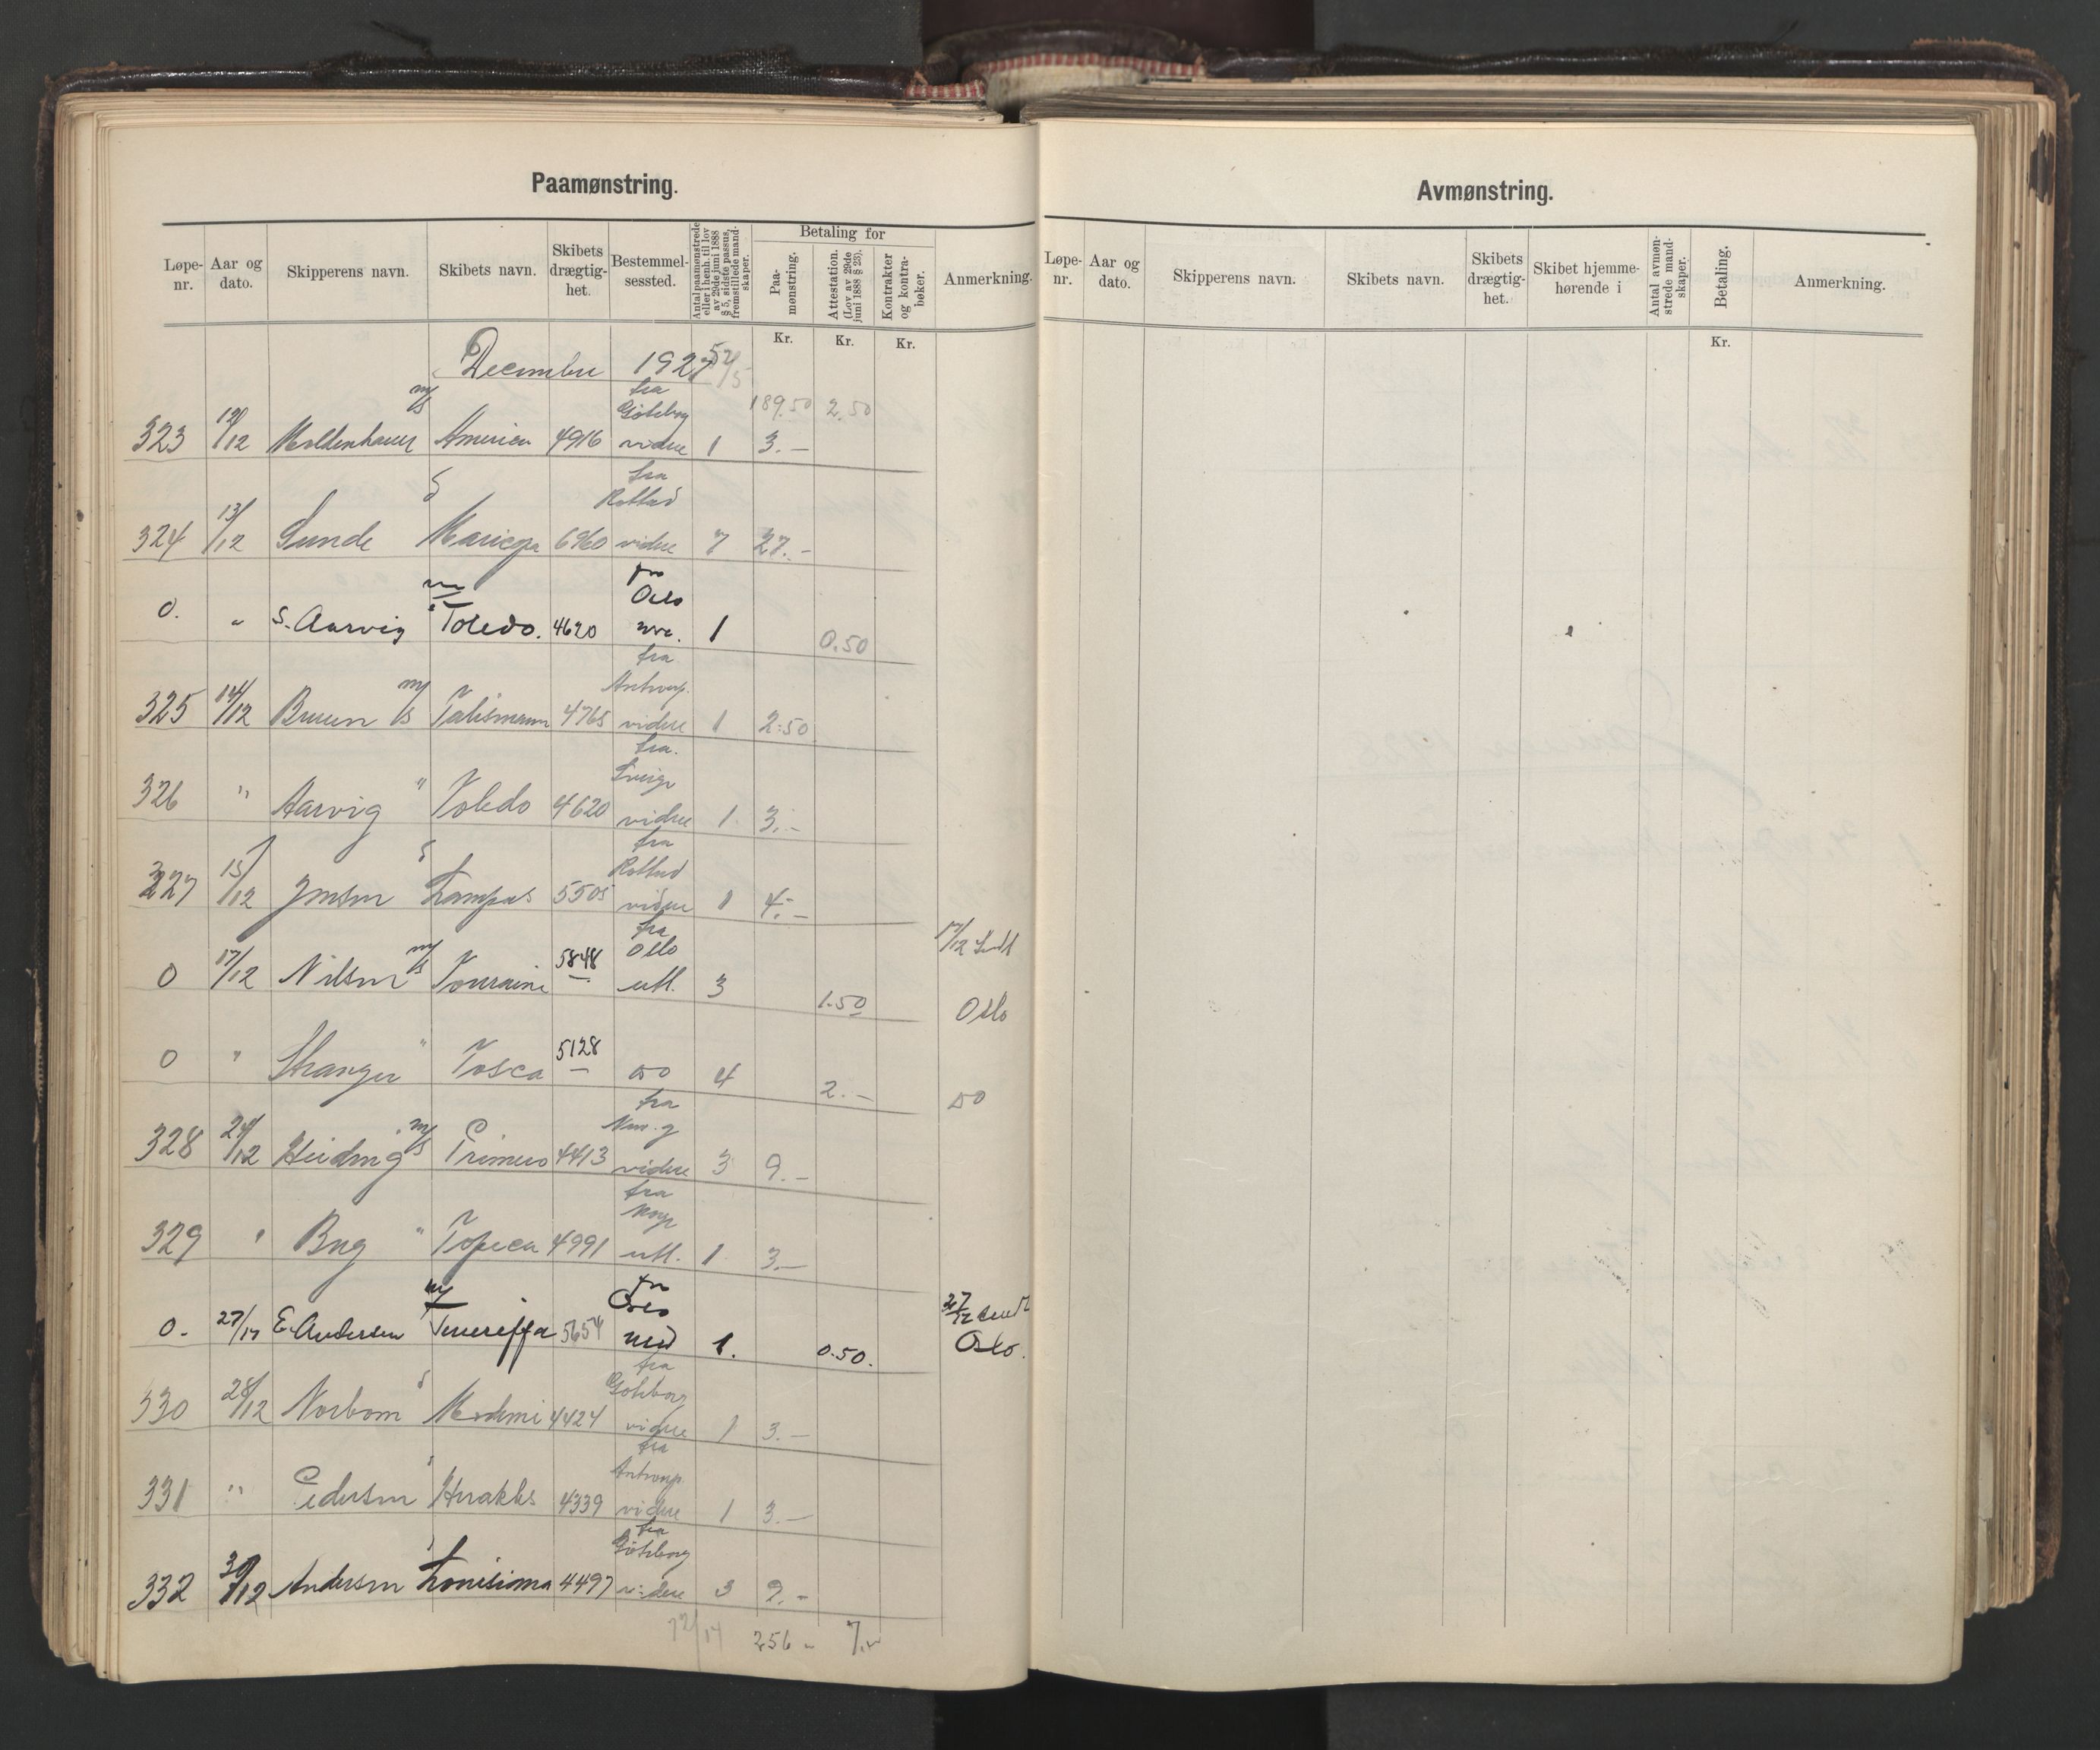 Paamønstring.
Løpe-nr. Aar og dato. Skipperens navn. Skibets navn. Skibets drægtig-het. Bestemmel-sessted. Antal paamønstrede eller i henh. til lov av 29de juni 1888 § 5, sidste passus, fremstillede mand-skaper. Betaling for Paa-mønstring. Attestation. (Lov av 29de juni 1888 § 23). Kontrakter og kontra-bøker. Anmerkning.
Kr. Kr. Kr.
December 1927 52/5
189.50 2.50
323 12/12 Moldenhauer m/s America 4916 fra Göteborg videre 1 3.-
324 13/12 Sunde S Maricopa 6960 fra Rottd videre 7 27.-
0. " S. Aarvig m/s Toledo. 4620 fra Oslo 1 0.50
325 14/12 Bruun m/s Talisman 4765 fra Antwp. videre 1 2.50
326 " Aarvig " Toledo 4620 fra Sverige videre 1 3.-
327 15/12 Jensen S Lampas 5505 fra Rottd videre 1 4.-
0 17/12 Nilsen m/s Touraine 5848 fra Oslo utl. 3 1.50 17/12 Sendt Oslo
0 " Stranger " Tosca 5128 do 4 2.- do
328 24/12 m/s Primero 4413 fra videre 3 9.-
329 " Berg " Topeca 4991 fra Norge utl. 1 3.-
0. 27/12 E. Andersen m/s Teneriffa 5654 fra Oslo 1. 0.50. 27/12 sendt Oslo.
330 28/12 Norbom S 4424 fra Göteborg videre 1 3.-
331 " Pedersen " Herakles 4339 fra Antwerp. videre 1 3.-
332 30/12 Andersen " Louisiana 4497 fra Göteborg videre 3 9.-
72/14 256 - 7.-
Avmønstring.
Løpe-nr. Aar og dato. Skipperens navn. Skibets navn. Skibets drægtig-het. Skibet hjemme-hørende i Antal avmøn-strede mand-skaper. Betaling. Anmerkning.
Kr.